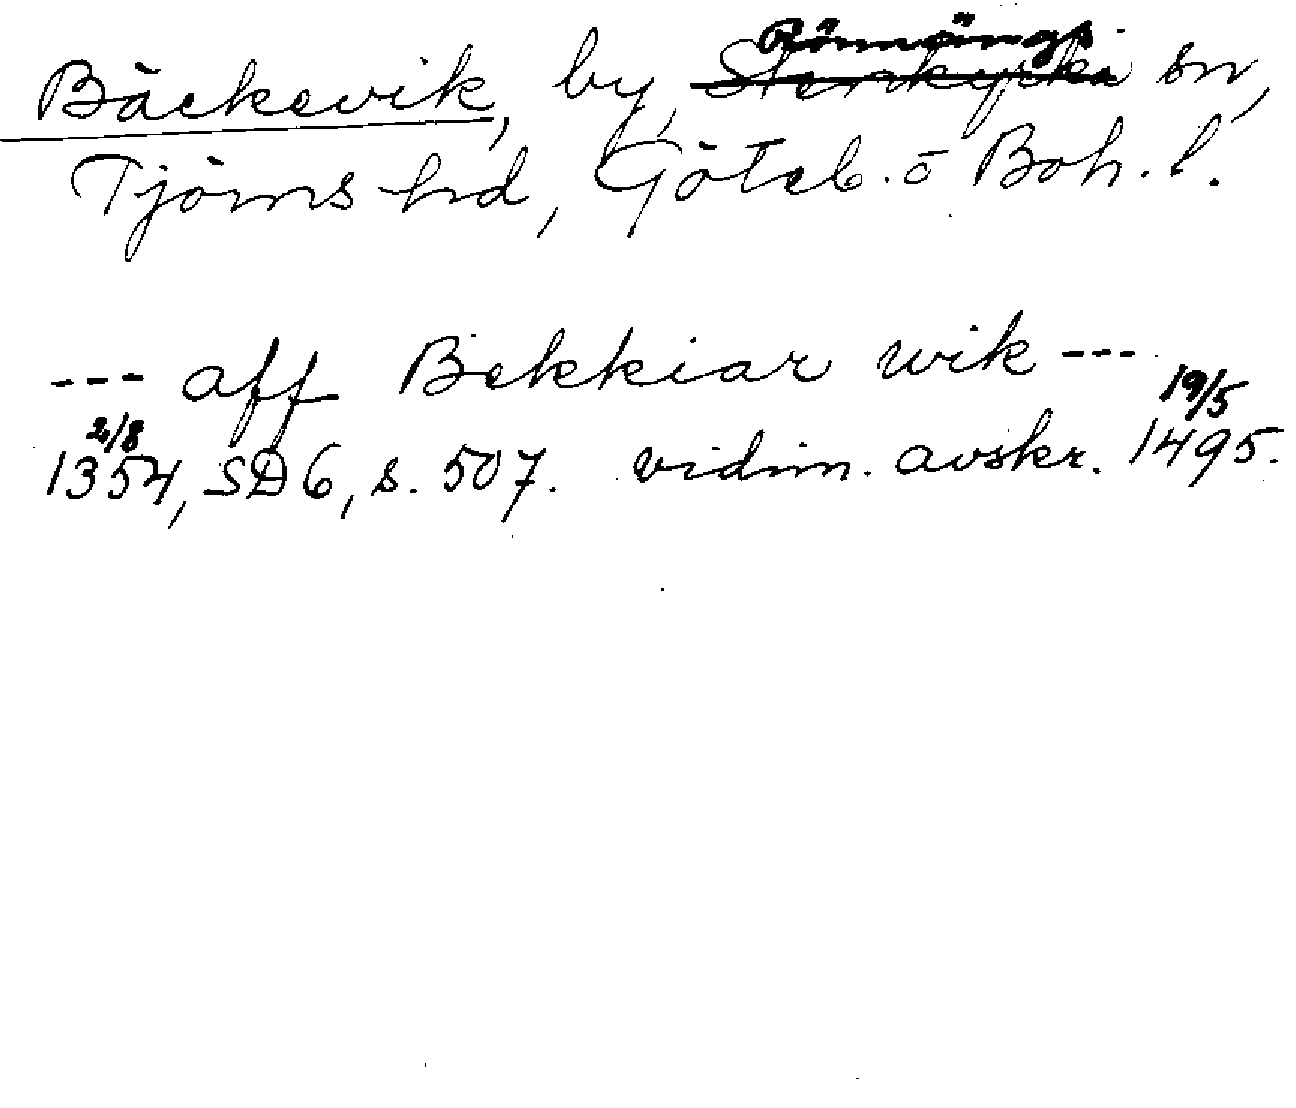 Rönnängs
Bäckevik, by, Stenkyrka sn,
Tjörns hd, Göteb. o Boh. l.
--- aff Bekkiar wik ---
2/8 19/5
1354, SD6, s. 507. vidim. avskr. 1495.